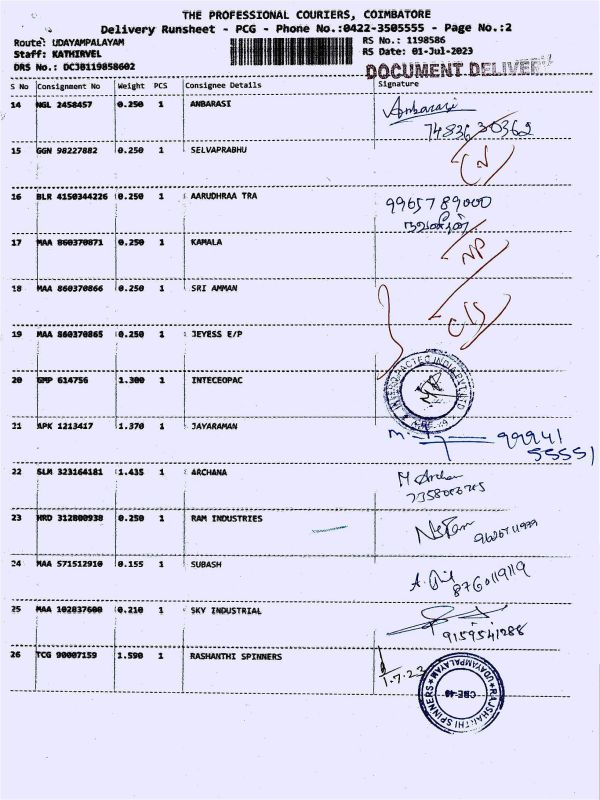 THE PROFESSIONAL COURIERS, COIMBATORE
Delivery Runsheet - PCG - Phone No.:0422-3505555 - Page No.:2
Route: UDAYAMPALAYAM RS No.: 1198586
Staff: KATHIRVEL RS Date: 01-Jul-2023
DRS No.: DCJ0119858602 DOCUMENT DELIVERY
S No Consignment No Weight PCS Consignee Details Signature
14 NGL 2458457 0.250 1 ANBARASI Anbarasi
74836 30362
15 GGN 98227882 0.250 1 SELVAPRABHU
16 BLR 4150344226 0.250 1 AARUDHRAA TRA 9965789000
17 MAA 860370871 0.250 1 KAMALA NP
18 MAA 860370866 0.250 1 SRI AMMAN
19 MAA 860370865 0.250 1 JEYESS E/P
20 GMP 614756 1.300 1 INTECEOPAC
21 APK 1213417 1.370 1 JAYARAMAN 99941
55551
22 SLM 323164181 1.435 1 ARCHANA M Archan
23 HRD 312800938 0.250 1 RAM INDUSTRIES
24 MAA 571512910 0.155 1 SUBASH 8760119119
25 MAA 102837600 0.210 1 SKY INDUSTRIAL
9159541288
26 TCG 90007159 1.590 1 RASHANTHI SPINNERS 1.7.23
RAJSHANTHI SPINNERS UDAYAMPALAYAM CBE-48